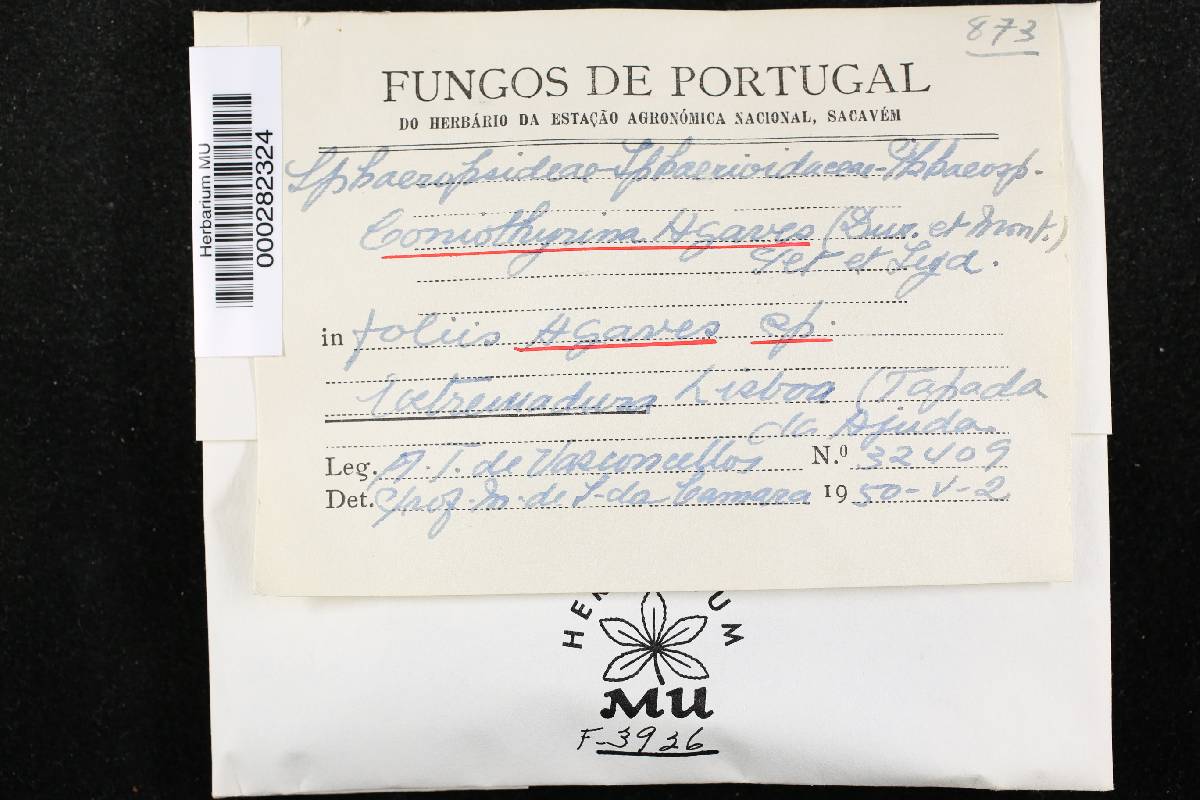 873
FUNGOS DE PORTUGAL
DO HERBÁRIO DA ESTAÇÃO AGRONÓMICA NACIONAL, SACAVÉM
Sphaeropsideae-Sphaerioidaceae-Phaeosp.
Coniothyrina Agaves (Dur. et Mont.)
Pet et Syd.
in foliis Agaves sp.
Extremadura Lisboa (Tapada
da Ajuda.
Leg. A. T. de Vasconcellos N.º 32409
Det. Prof. M. de S. da Camara 1950-V-2
Herbarium MU
0000282324
HER UM
MU
F-3926